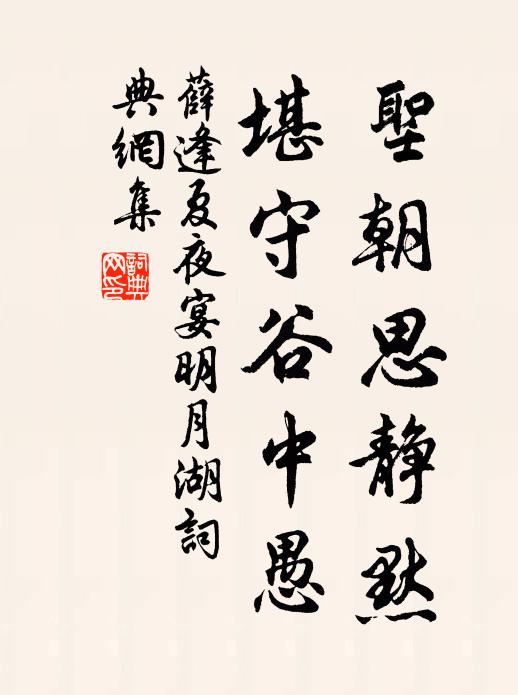 聖朝思静默
堪守谷中愚
薛逢夏夜宴明月湖詞
典網集
詞典网印